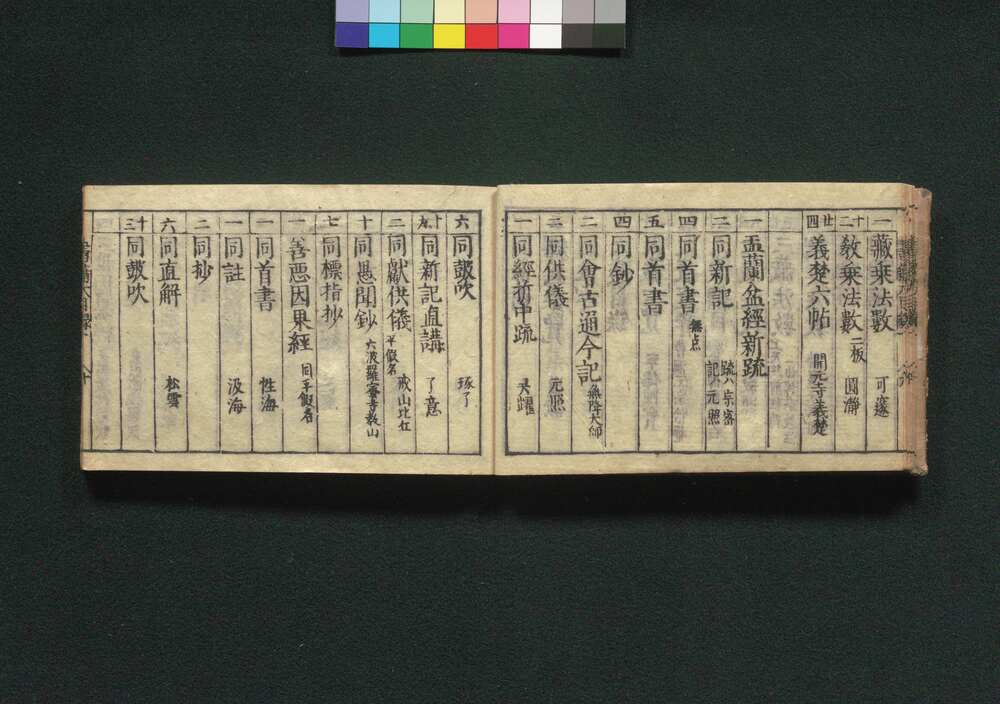 一 藏乘法數 可遂
十二 教乘法數 二板 圓瀞
廿四 義楚六帖 開元寺義楚
一 盂蘭盆經新疏
二 同新記 疏ハ宗密 記ハ元照
四 同首書 無点
五 同首書
四 同鈔
二 同會古通今記 無降大師
二 同供儀 元照
一 同經折中疏 灵躍
六 同皷吹 琢了
十九 同新記直講 了意
二 同獻供儀 平假名 叡山比丘
十 同愚聞鈔 六波羅蜜寺教山
七 同標指抄
一 善惡因果經 同平假名
一 同首書 性海
一 同註 汲海
二 同抄
六 同直解 松雲
十三 同皷吹
書籍目録